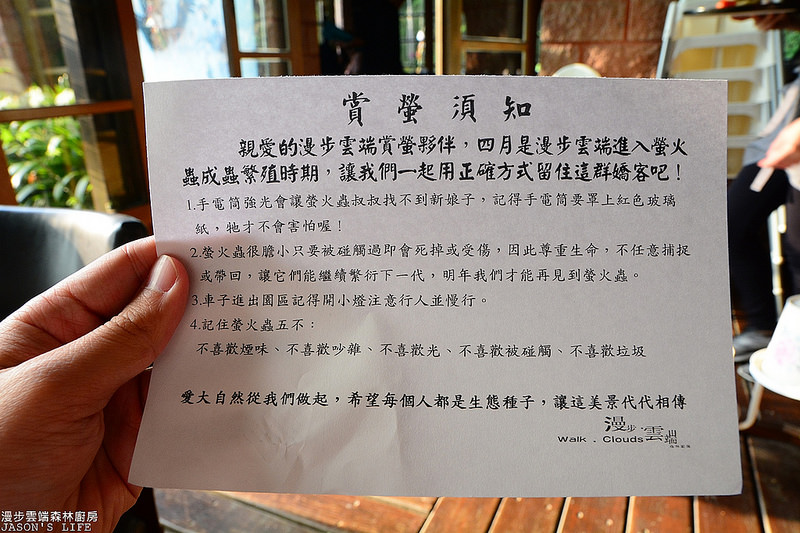 賞螢須知
親愛的漫步雲端賞螢夥伴，四月是漫步雲端進入螢火
蟲成蟲繁殖時期，讓我們一起用正確方式留住這群嬌客吧！
1.手電筒強光會讓螢火蟲叔叔找不到新娘子，記得手電筒要罩上紅色玻璃
紙，牠才不會害怕喔！
2.螢火蟲很膽小只要被碰觸過即會死掉或受傷，因此尊重生命，不任意捕捉
或帶回，讓它們能繼續繁衍下一代，明年我們才能再見到螢火蟲。
3.車子進出園區記得開小燈注意行人並慢行。
4.記住螢火蟲五不：
不喜歡煙味、不喜歡吵雜、不喜歡光、不喜歡被碰觸、不喜歡垃圾
愛大自然從我們做起，希望每個人都是生態種子，讓這美景代代相傳
漫步．雲端
Walk . Clouds
漫步雲端森林廚房
JASON'S LIFE